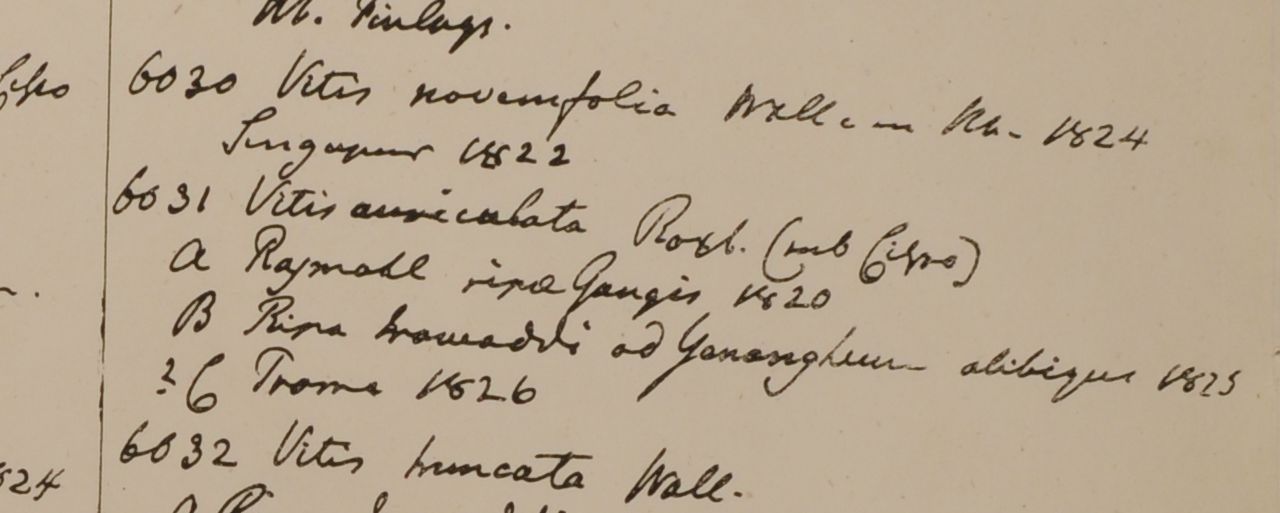 M. Finlays.
6030 Vitis novemfolia Wall. in Rb. 1824
Singapur 1822
6031 Vitis auriculata Roxb. (sub Cisso)
A Rajmahl ripa Gangis 1820
B Ripa Irawaddi ad Yenangheum alibique 1825
? C Trome 1826
6032 Vitis truncata Wall.